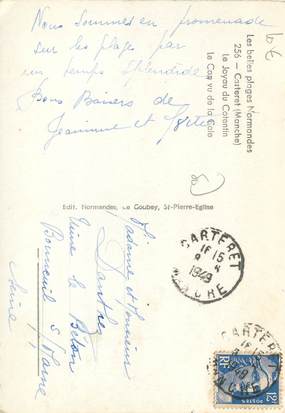 Nous sommes en promenade
sur les plages par
un temps splendide
Bons Baisers de
Jeannine et
10€
Les belles plages Normandes
256 — Carteret (Manche)
Le Joyau du Cotentin
Le Cap vu de la Cale
Edit. Normandes, Le Goubey, St-Pierre-Eglise
Madame et Monsieur
Usine le Béton
Bonneuil s/ Marne
Seine
CARTERET
15
1949
MANCHE
CARTERET
15
1949
MANCHE
POSTES
12F
RF